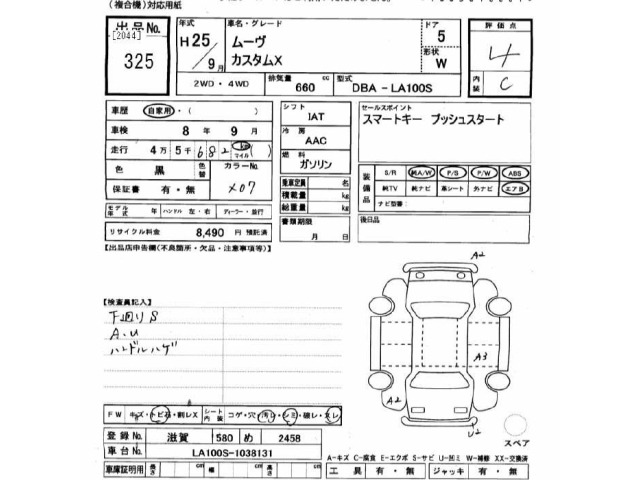 (複合機)対応用紙
出品No.
[2044]
325
年式
H25/9月
車名・グレード
ムーヴ
カスタムX
ドア
5
形状
W
2WD・4WD
排気量
660 cc
型式
DBA - LA100S
評価点
4
内装
C
車歴 自家用・( )
車検 8年 9月
走行 4万5千682 km マイル
色 黒 色替
カラーNo.
X07
保証書 有・無
モデル年式 年 ハンドル 左・右 ディーラー・並行
リサイクル料金 8,490 円 預託済
シフト
IAT
冷房
AAC
燃料
ガソリン
乗車定員 名
積載量 kg
総重量 kg
書類期限
月 日
セールスポイント
スマートキー プッシュスタート
装備品
S/R 純A/W P/S P/W ABS
純TV 純ナビ 革シート 外ナビ エアB
ナビ型番:
後日品
【出品店申告欄(不良箇所・欠品・注意事項等)】
【検査員記入】
下回りS
A.U
ハンドルハゲ
A2
A3
A2
U2
スペア
FW キズ・トビ石・割レX シート内装 コゲ・穴・汚レ・シミ・破レ・スレ
登録No. 滋賀 580 め 2458
車台No. LA100S-1038131
車庫証明用 長さ cm 幅 cm 高さ cm
A-キズ C-腐食 E-エクボ S-サビ U-凹ミ W-補修 XX-交換済
工具 有・無 ジャッキ 有・無